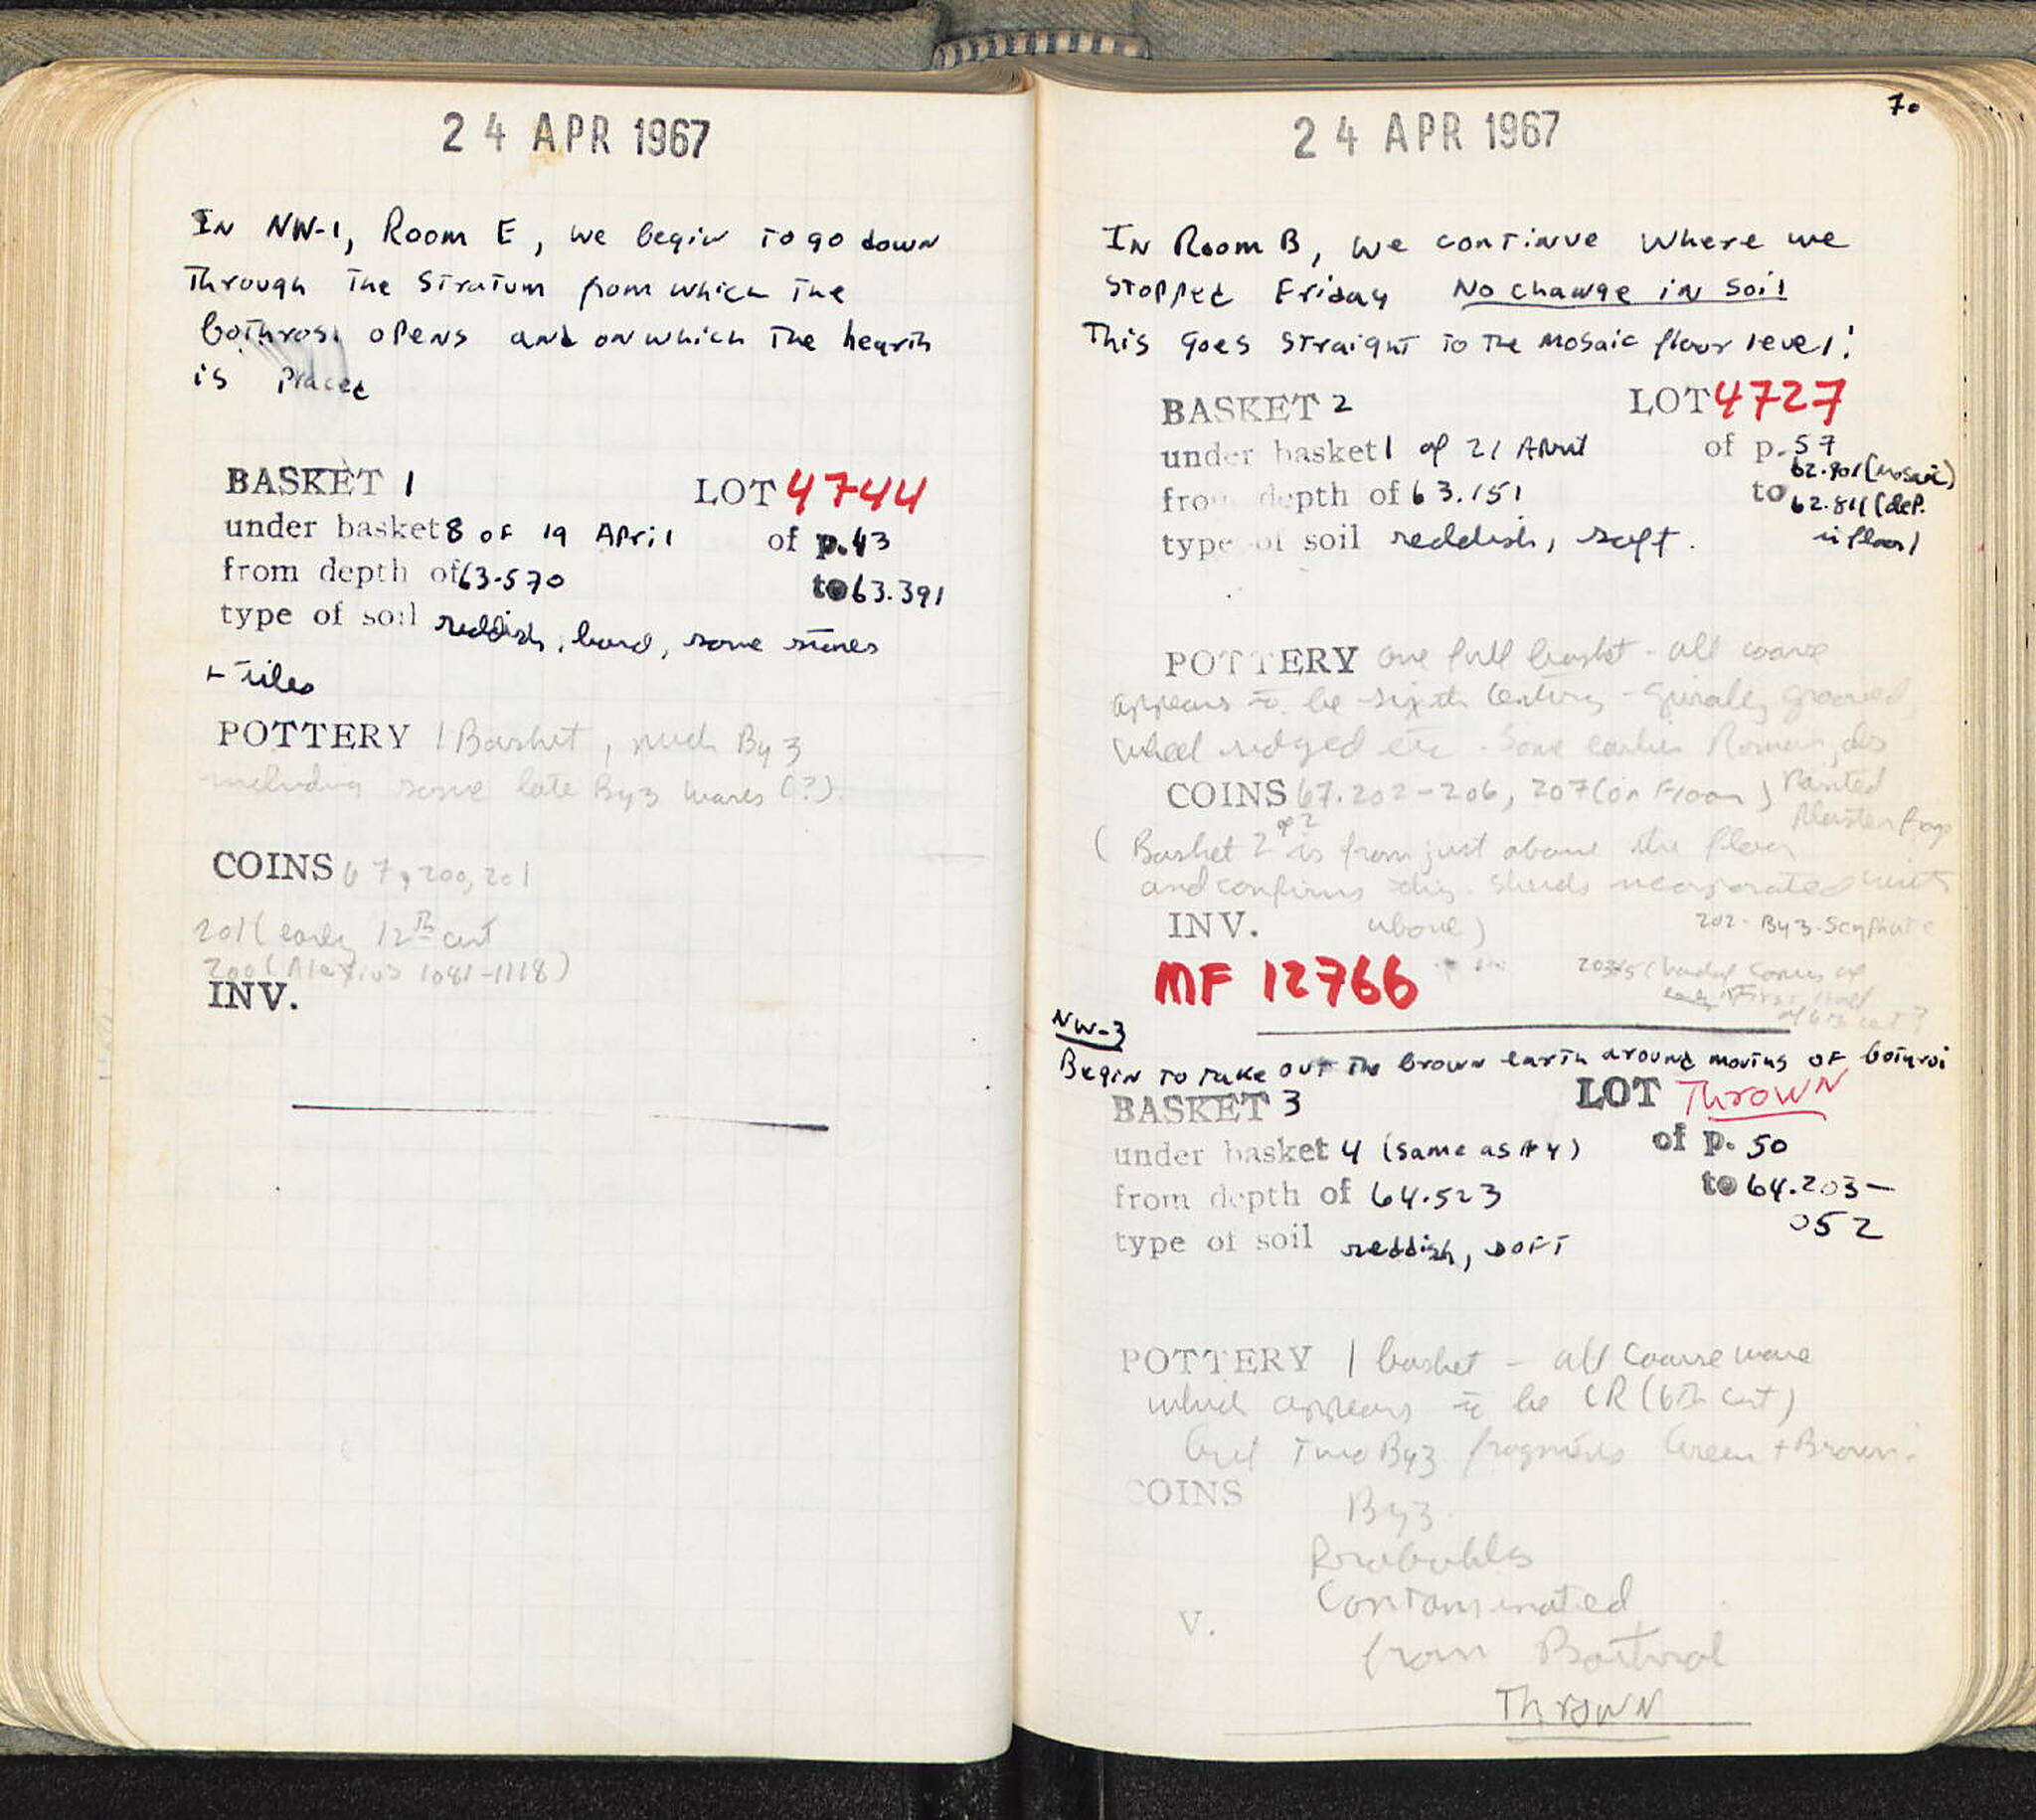 24 APR 1967
In NW-1, Room E, we begin to go down
Through the Stratum from which the
bothros opens and on which the hearth
is placed
BASKET 1 LOT 4744
under basket 8 of 19 April of p. 43
from depth of 63.570 to 63.391
type of soil reddish, hard, some stones
+ tiles
POTTERY 1 Basket, much Byz
including some late Byz wares (?).
COINS 67, 200, 201
201 (early 12th cent
200 (Alexius 1081-1118)
INV.
70
24 APR 1967
In Room B, we continue where we
stopped Friday No change in soil
This goes straight to the mosaic floor level!
BASKET 2 LOT 4727
under basket 1 of 21 April of p. 57
from depth of 63.151 to 62.801 (mosaic)
62.811 (dep.
in floor)
type of soil reddish, soft.
POTTERY one full basket - all coarse
appears to be sixth century - spirally grooved
wheel ridged etc. Some earlier Roman, also
COINS 67.202-206, 207 (on Floor) Painted
Plaster frag
(Basket 2 of 2 is from just above the floor
and confirms this. Sherds incorporated with
above)
INV. 202 - Byz. Scyphate
MF 12766
203-5 ( of
First half
of 6th cent?
NW-3
Begin to take out the brown earth around mouths of bothroi
BASKET 3 LOT Thrown
under basket 4 (same as # 4) of p. 50
from depth of 64.523 to 64.203-
052
type of soil reddish, soft
POTTERY 1 basket - all coarse ware
which appears to be LR (6th cent)
but two Byz fragments Green + Brown.
COINS Byz.
Probably
Contaminated
V.
from Bothroi
Thrown